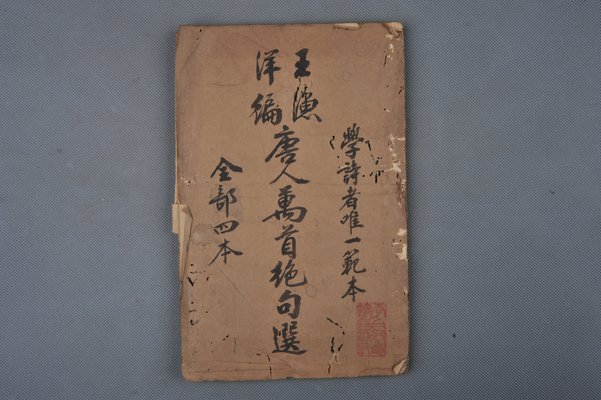 學詩者唯一範本
王漁
洋編
唐人萬首絶句選
全部四本